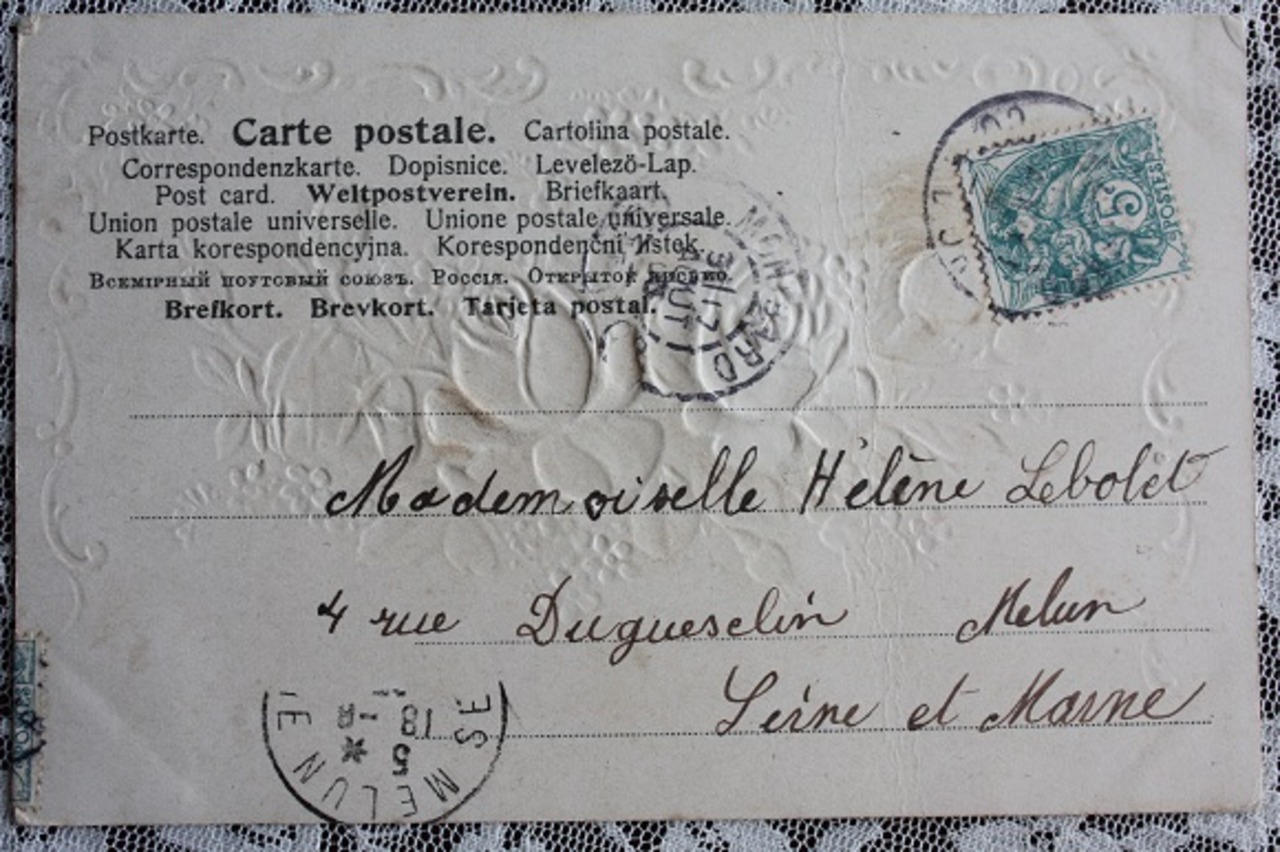 Postkarte. Carte postale. Cartolina postale.
Correspondenzkarte. Dopisnice. Levelező-Lap.
Post card. Weltpostverein. Briefkaart.
Union postale universelle. Unione postale universale.
Karta korespondencyjna. Korespondenční lístek.
Всемірный поутовый союзъ. Россія. Открытое письмо.
Brefkort. Brevkort. Tarjeta postal.
5
POSTES
MONTBARD
Mademoiselle Hélène Lebolét
4 rue Duguesclin Melun
Seine et Marne
MELUN
18
5